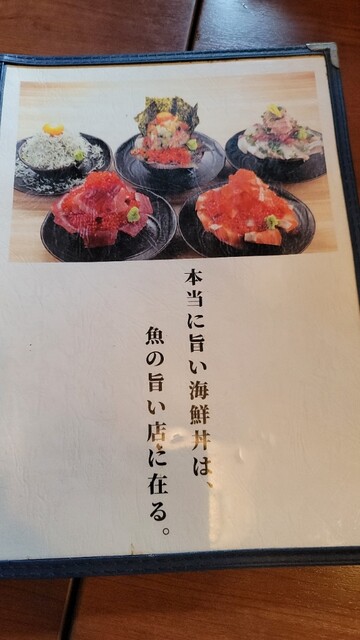 本当に旨い海鮮丼は、
魚の旨い店に在る。